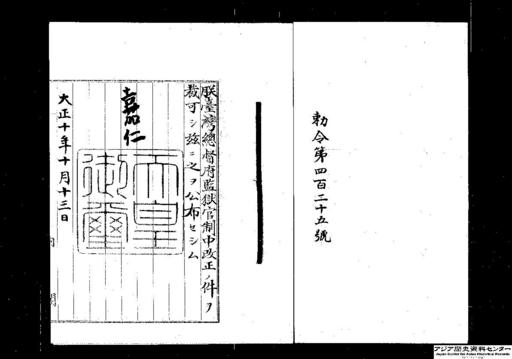 勅令第四百二十五號
朕臺灣總督府監獄官制中改正ノ件ヲ
裁可シ玆ニ之ヲ公布セシム
嘉仁
天皇
御璽
大正十年十月十三日
アジア歴史資料センター
Japan Center for Asian Historical Records